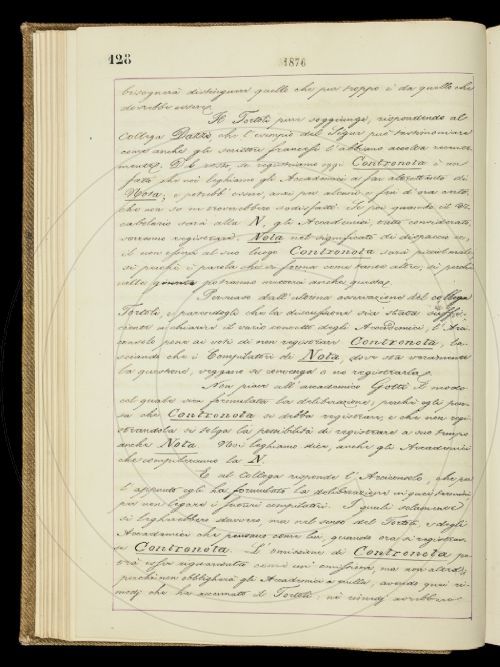 128
1876
bisognerà distinguere quello che pur troppo è da quello che
dovrebbe essere.
Il Tortoli pure soggiunge, rispondendo al
Collega Dazzi che l'esempio del Segur può testimoniare
come anche gli scrittori francesi l'abbiano accolta recente-
mente. Del resto, se registriamo oggi Contronota è un
fatto che noi leghiamo gli Accademici a far altrettanto di
Nota; e potrebb'essere, anzi per alcuni è fin d'ora certo,
che non se ne troverebbero sodisfatti. Se poi quando il Vo-
cabolario sarà alla N, gli Accademici, tutto considerato,
vorranno registrare Nota nel significato di dispaccio ec,
il non essere al suo luogo Contronota sarà piccol male,
sì perchè è parola che si forma come tante altre, sì perchè
nelle giunte potranno mettere anche questa.
Persuaso dall'ultima osservazione del collega
Tortoli, e parendogli che la discussione sia stata suffi-
ciente a chiarire il vario concetto degli Accademici, l'Arci-
consolo pone ai voti di non registrare Contronota, la-
sciando che i Compilatori di Nota, dove sta veramente
la questione, veggano se convenga o no registrarla.
Non piace all'accademico Gotti il modo
col quale vien formulata la deliberazione; perchè egli pen-
sa che Contronota si debba registrare, e che non regi-
strandola si tolga la possibilità di registrare a suo tempo
anche Nota. Noi leghiamo dice, anche gli Accademici
che compileranno la N.
E al Collega risponde l'Arciconsolo, che per
l'appunto egli ha formulato la deliberazione in quei termini
per non legare i futuri compilatori. I quali solamente
si legherebbero davvero, ma nel senso del Tortoli e degli
Accademici che pensano come lui, quando ora si registras-
se Contronota. L'omissione di Contronota po-
trà esser riguardata come un'omissione, ma non altro;
perchè non obbligherà gli Accademici a nulla, avendo quei ri-
medj che ha accennato il Tortoli: nè rimedj sarebbero